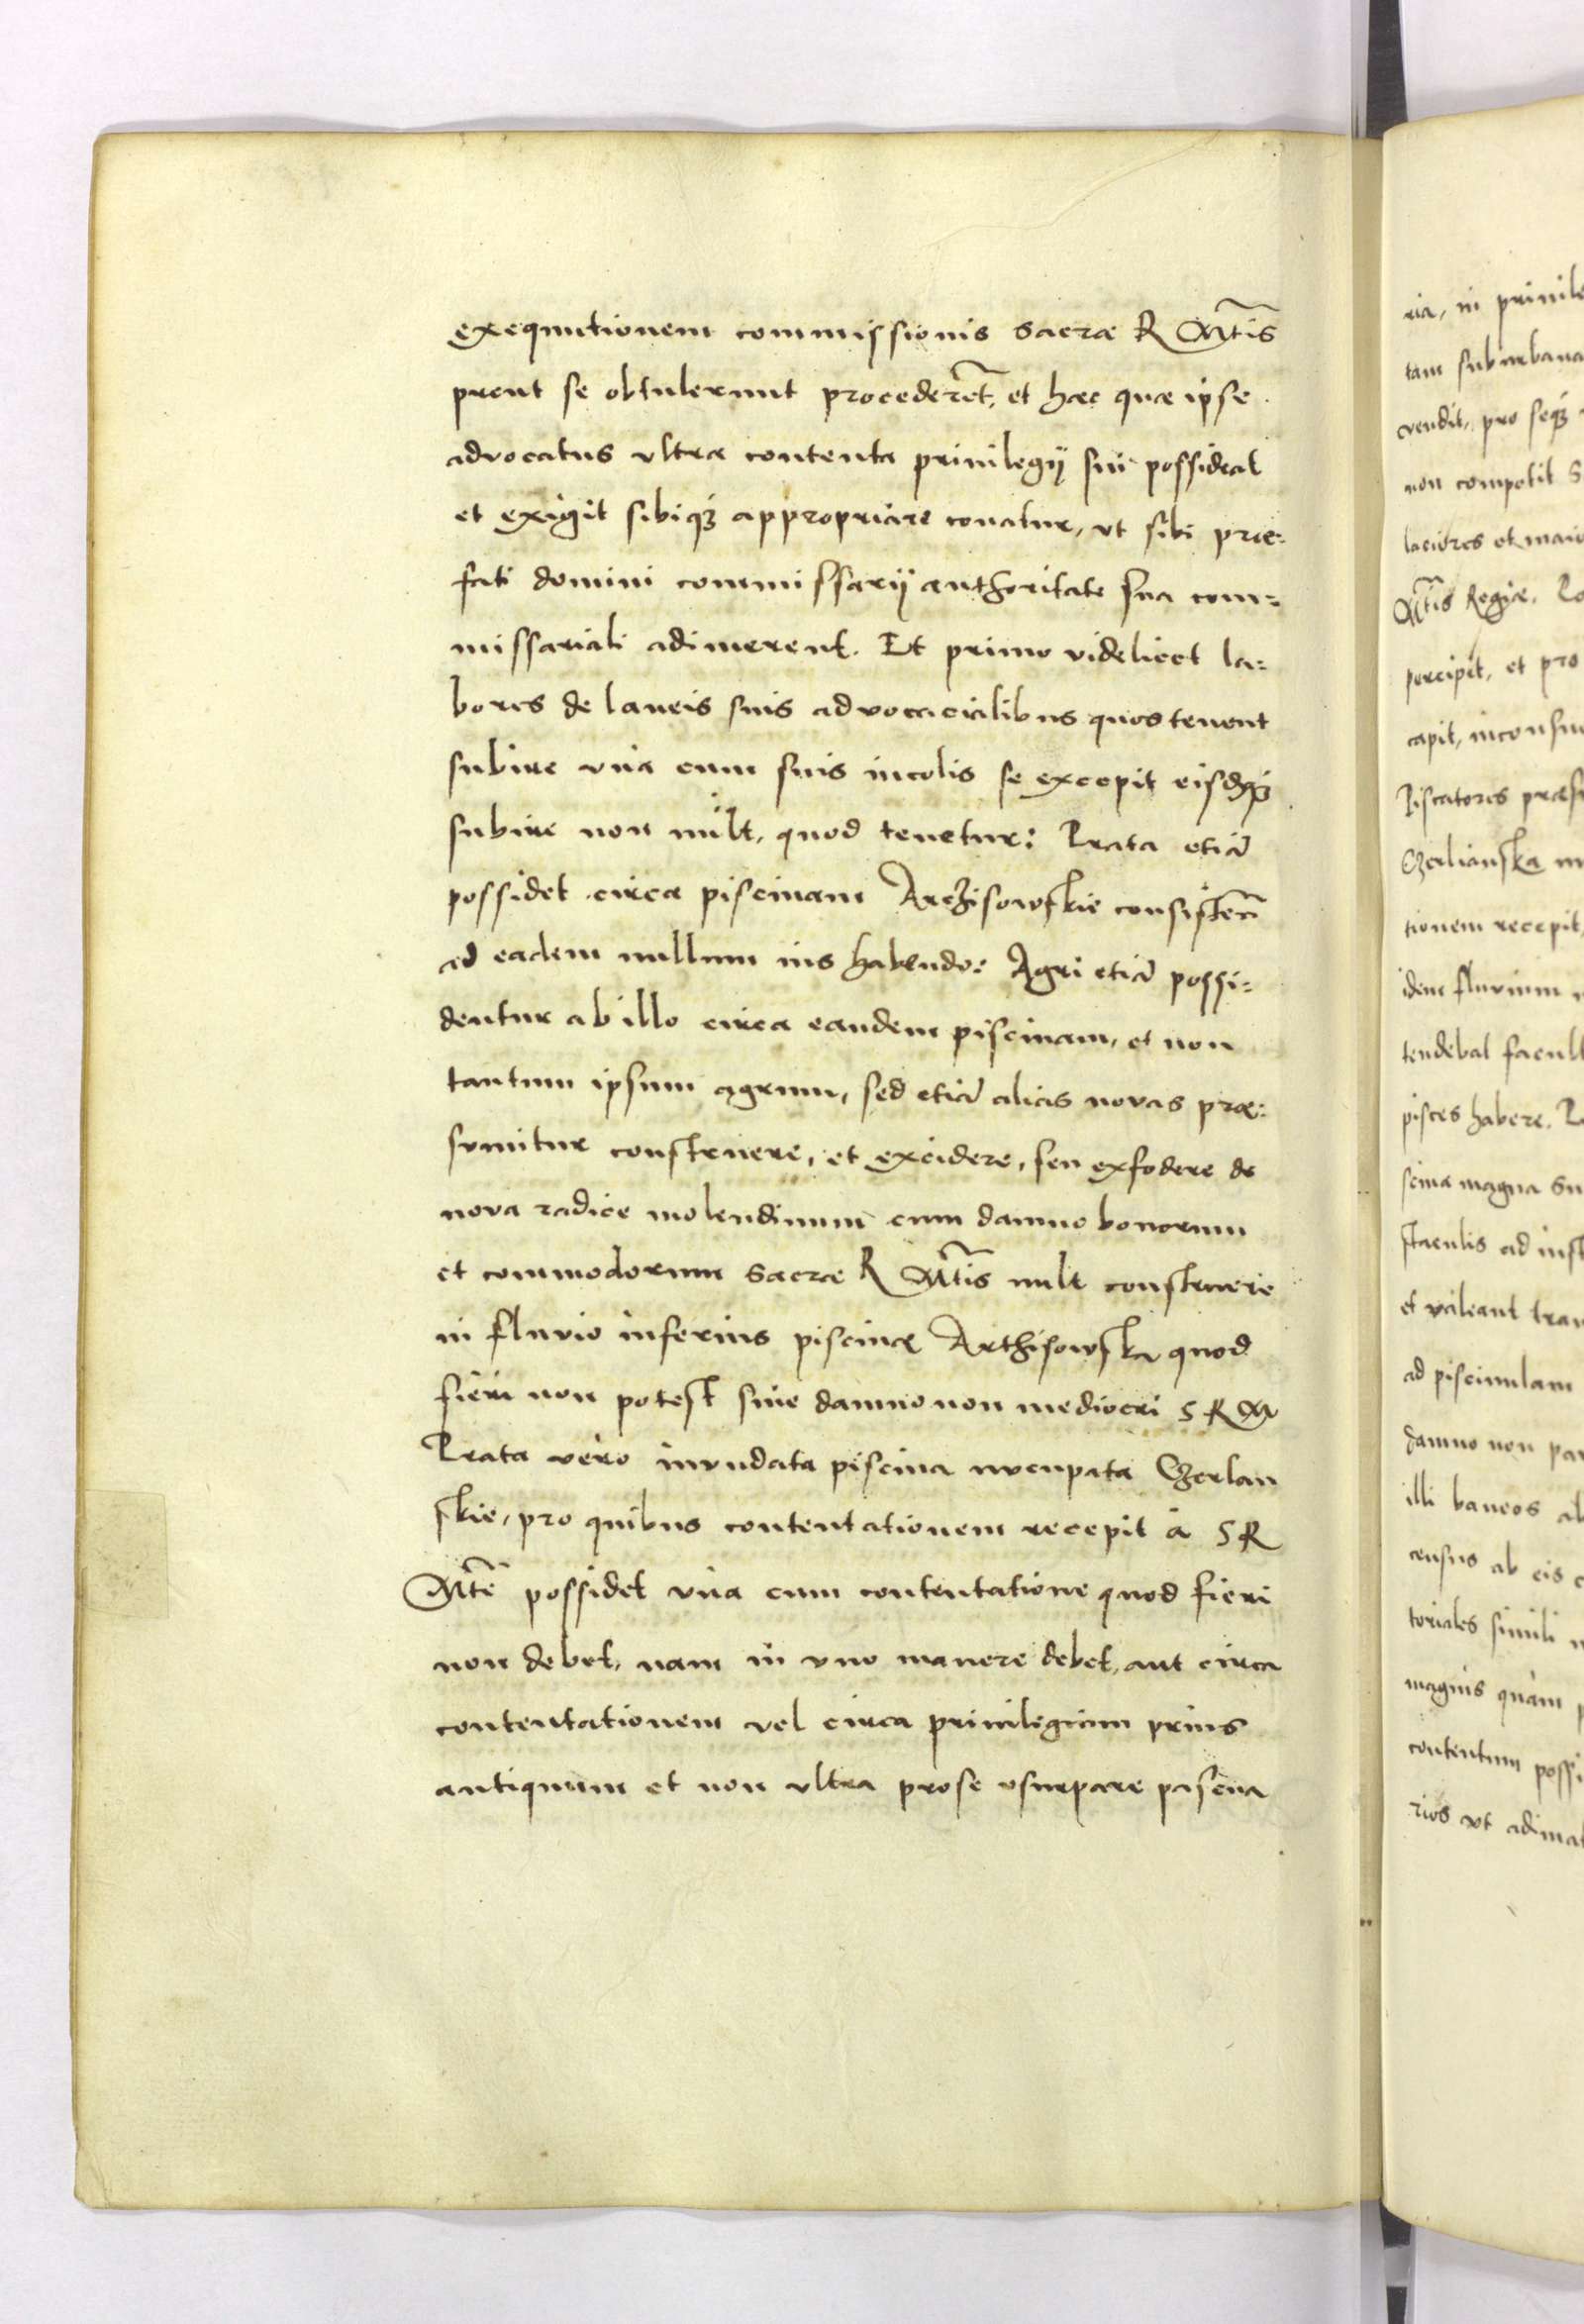 exequutionem commissionis Sacræ R Mtis
prout se obtulerunt procederēt, et hæc quæ ipse
advocatus ultra contenta privilegij sui possideat
et exigit sibiq3 appropriare conatur, ut sibi præ-
fati domini commissarij authoritate sua com-
missariali adimerent. Et primo videlicet la-
bores de laneis suis advocacialibus quos tenent
subire una cum suis incolis se excepit eisdq3
subire non vult, quod tenetur: Prata etiā
possidet circa piscinam Archisowskie consisten̄
ad eadem nullum ius habendo: Agri etiā possi-
dentur ab illo circa eandem piscinam, et non
tantum ipsum agrum, sed etiā alias novas præ-
sumitur construere, et excidere, seu exfodere de
nova radice molendinum cum damno bonorum
et commodorum Sacræ R Mtis vult construere
in fluvio inferius piscinæ Arthisowska quod
fieri non potest sine damno non mediocri S R M
Prata vero inundata piscina nucupata Czerlan
skie, pro quibus contentationem recepit a S R
Mte possidet una cum contentatione quod fieri
non debet, nam in uno manere debet, aut circa
contentationem vel circa privilegium prius
antiquum et non ultra prose usurpare pascua
ria, in privile
tam suburbana
vendit, pro seq3
non competit S
laciores et maio
Mtis Regiæ.
percipit, et pro
capit, inconsu
Piscatores præs
Czerlianska
tionem recepit,
idem fluvium
tendebat facult
pisces habere.
scina magna su
staculis ad inst
et valeant tran
ad piscinulam
damno non par
illi laneos al
census ab eis
toriales simili
magnis quam
contentum possi
rios ut adimat